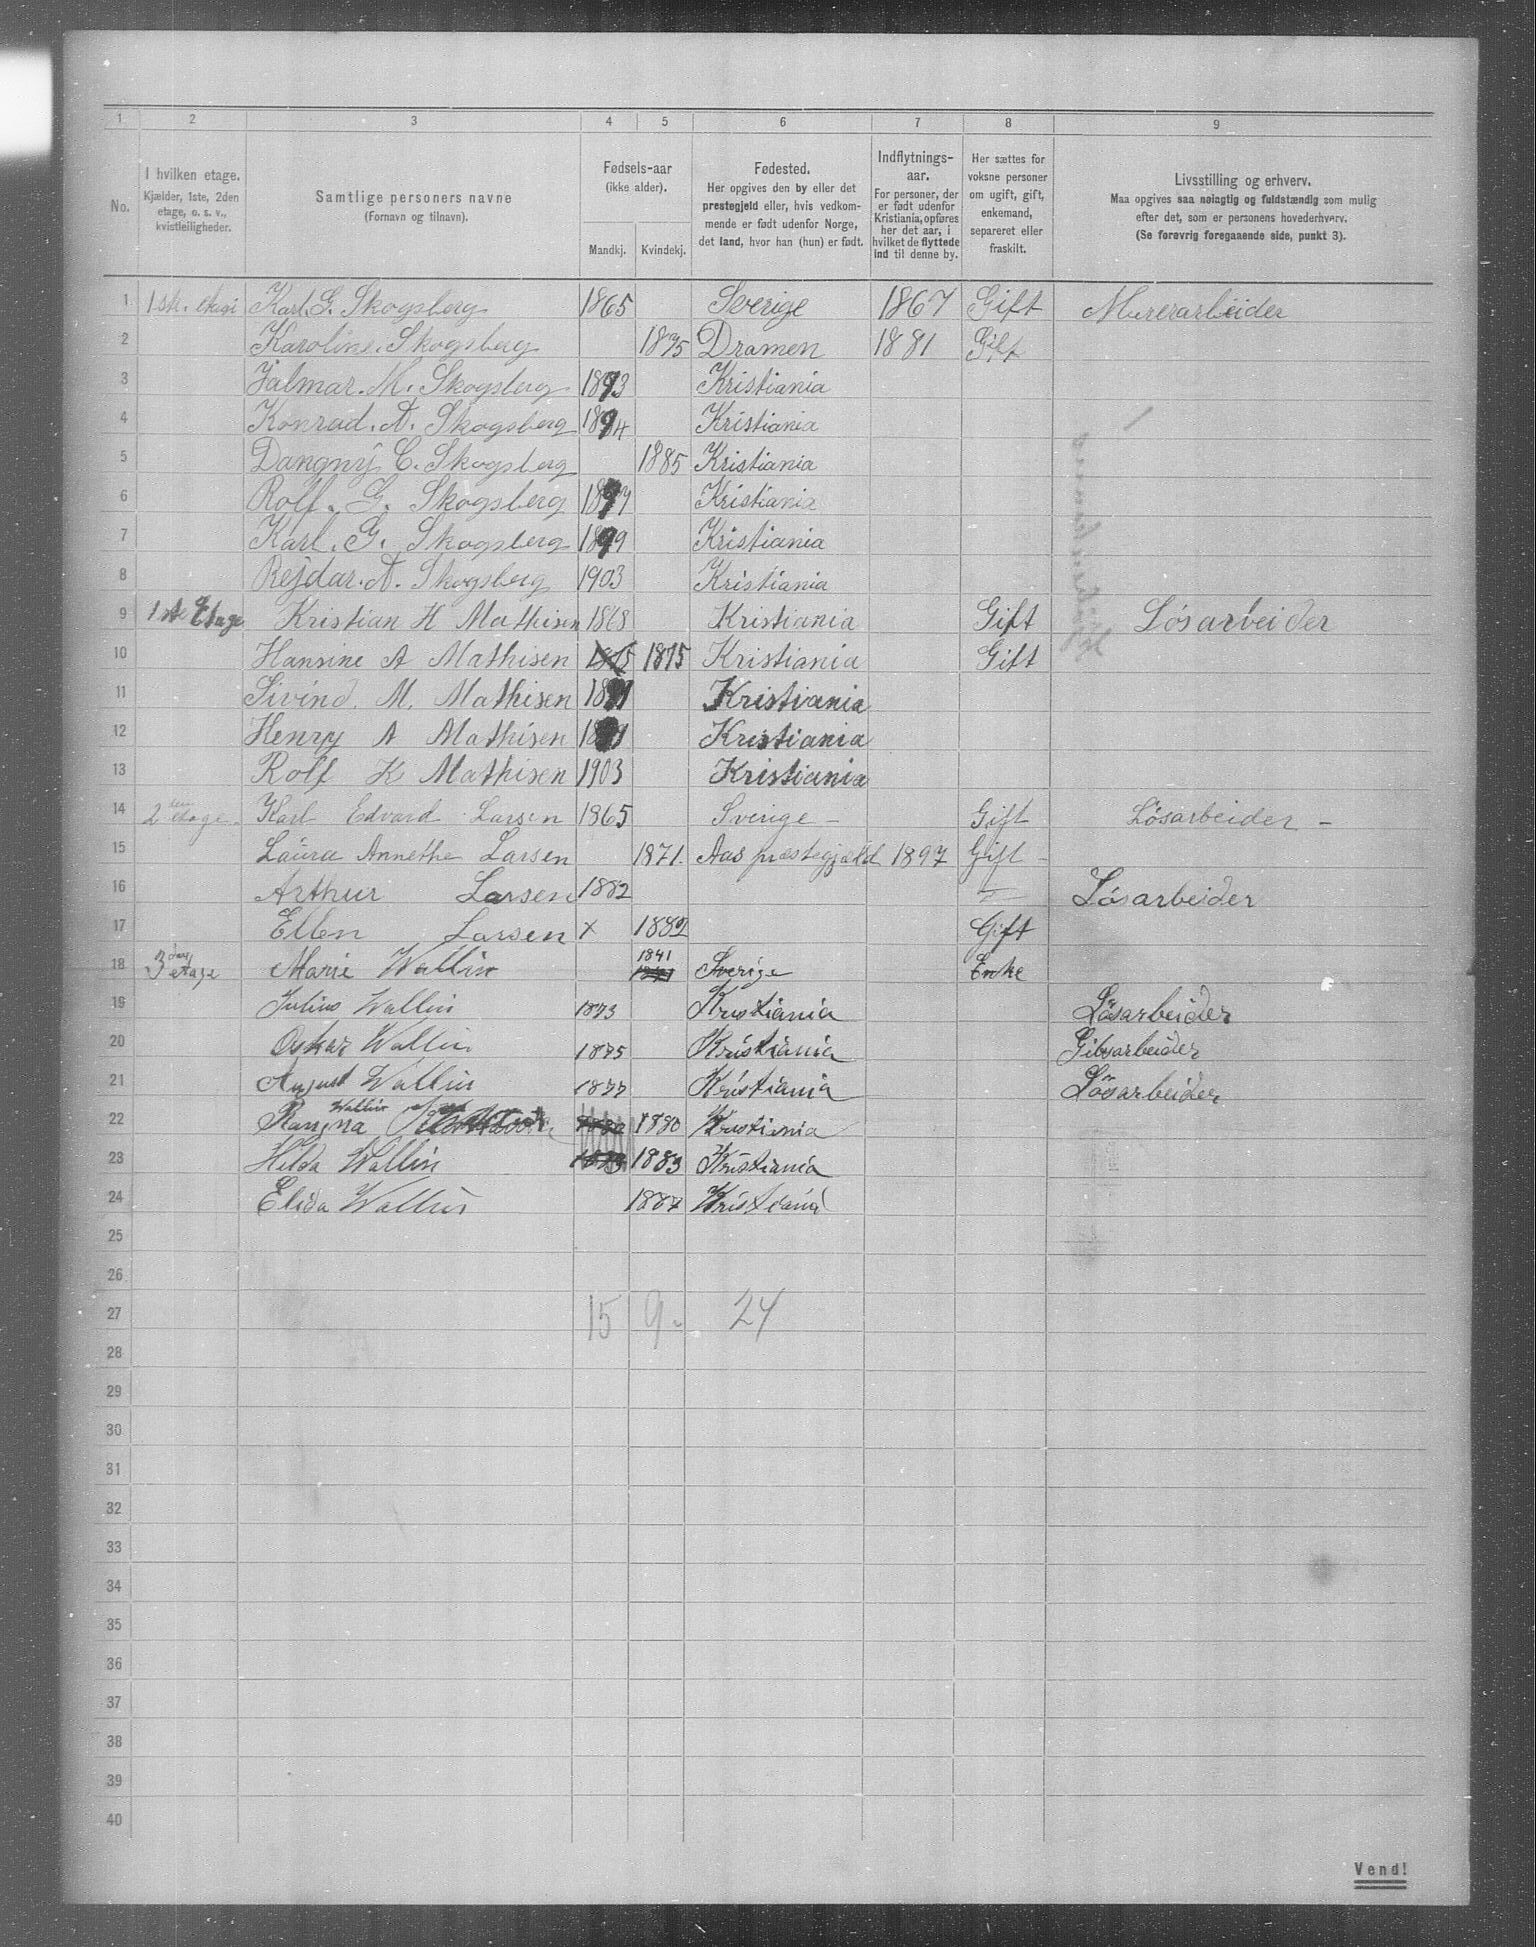 1 2 3 4 5 6 7 8 9
No.
I hvilken etage.
Kjælder, 1ste, 2den
etage, o. s. v.,
kvistleiligheder.
Samtlige personers navne
(Fornavn og tilnavn).
Fødsels-aar
(ikke alder).
Mandkj. Kvindekj.
Fødested.
Her opgives den by eller det
prestegjeld eller, hvis vedkom-
mende er født udenfor Norge,
det land, hvor han (hun) er født.
Indflytnings-
aar.
For personer, der
er født udenfor
Kristiania, opføres
her det aar, i
hvilket de flyttede
ind til denne by.
Her sættes for
voksne personer
om ugift, gift,
enkemand,
separeret eller
fraskilt.
Livsstilling og erhverv.
Maa opgives saa nøiagtig og fuldstændig som mulig
efter det, som er personens hovederhverv.
(Se forøvrig foregaaende side, punkt 3).
1 1ste. etage Karl. G. Skogsberg 1865 Sverige 1867 Gift Murerarbeider
2 Karoline. Skogsberg 1875 Dramen 1881 Gift
3 Jalmar. M. Skogsberg 1893 Kristiania
4 Konrad. A. Skogsberg 1894 Kristiania
5 Dangny C. Skogsberg 1885 Kristiania
6 Rolf. G. Skogsberg 1897 Kristiania
7 Karl. G. Skogsberg 1899 Kristiania
8 Rejdar. A. Skogsberg 1903 Kristiania
9 1ste Etage Kristian H Mathisen 1868 Kristiania Gift Lösarbeider
10 Hansine A Mathisen 1875 1875 Kristiania Gift
11 Sivind. M. Mathisen Kristiania
12 Henry A Mathisen Kristiania
13 Rolf K Mathisen 1903 Kristiania
14 2den etage. Karl Edvard Larsen 1865 Sverige - Gift Lösarbeider -
15 Laura Annethe Larsen 1871. Aas præstegjæld 1897 Gift -
16 Arthur Larsen 1882 Lösarbeider
17 Ellen Larsen x 1882 Gift
18 3die etage Marie Wallin 1841 Sverige Enke
19 Julius Wallin 1873 Kristiania Lösarbeider
20 Oskar Wallin 1875 Kristiania Gibsarbeider
21 August Wallin 1877 Kristiania Lösarbeider
22 Rangna Wallin 1880 1880 Kristiania
23 Hilda Wallin 1883 1883 Kristiania
24 Elida Wallin 1887 Kristiania
25
26
27 15 9. 24
28
29
30
31
32
33
34
35
36
37
38
39
40
Vend!